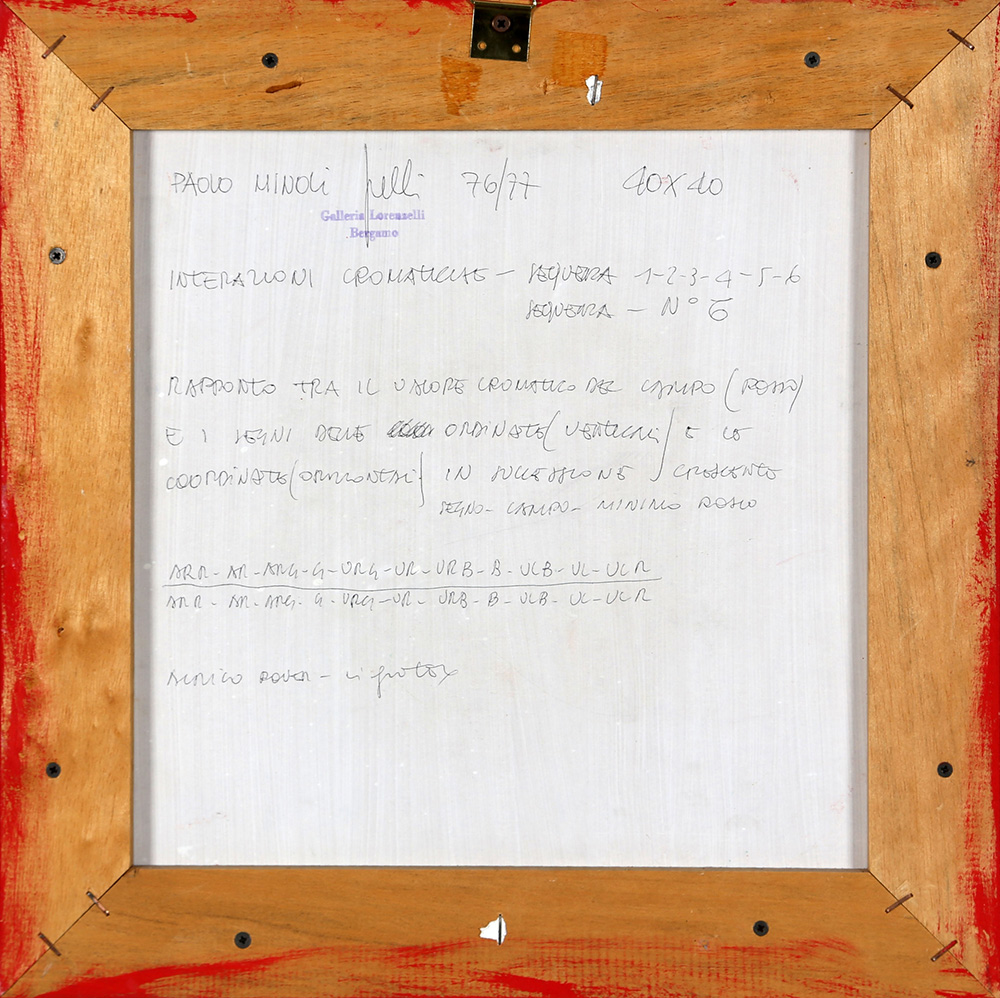 PAOLO MINOLI 76/77 40X40
Galleria Lorenzelli
Bergamo
INTERAZIONI CROMATICHE - SEQUENZA 1-2-3-4-5-6
SEQUENZA - N° 6
RAPPORTO TRA IL VALORE CROMATICO DEL CAMPO (ROSSO)
E I SEGNI DELLE ORDINATE (VERTICALI) E LE
COORDINATE (ORIZZONTALI) IN SUCCESSIONE CRESCENTE
SEGNO - CAMPO - MINIMO ROSSO
ARR - AR - ARG - G - VRG - VR - VRB - B - VLB - VL - VLR
ARR - AR - ARG - G - VRG - VR - VRB - B - VLB - VL - VLR